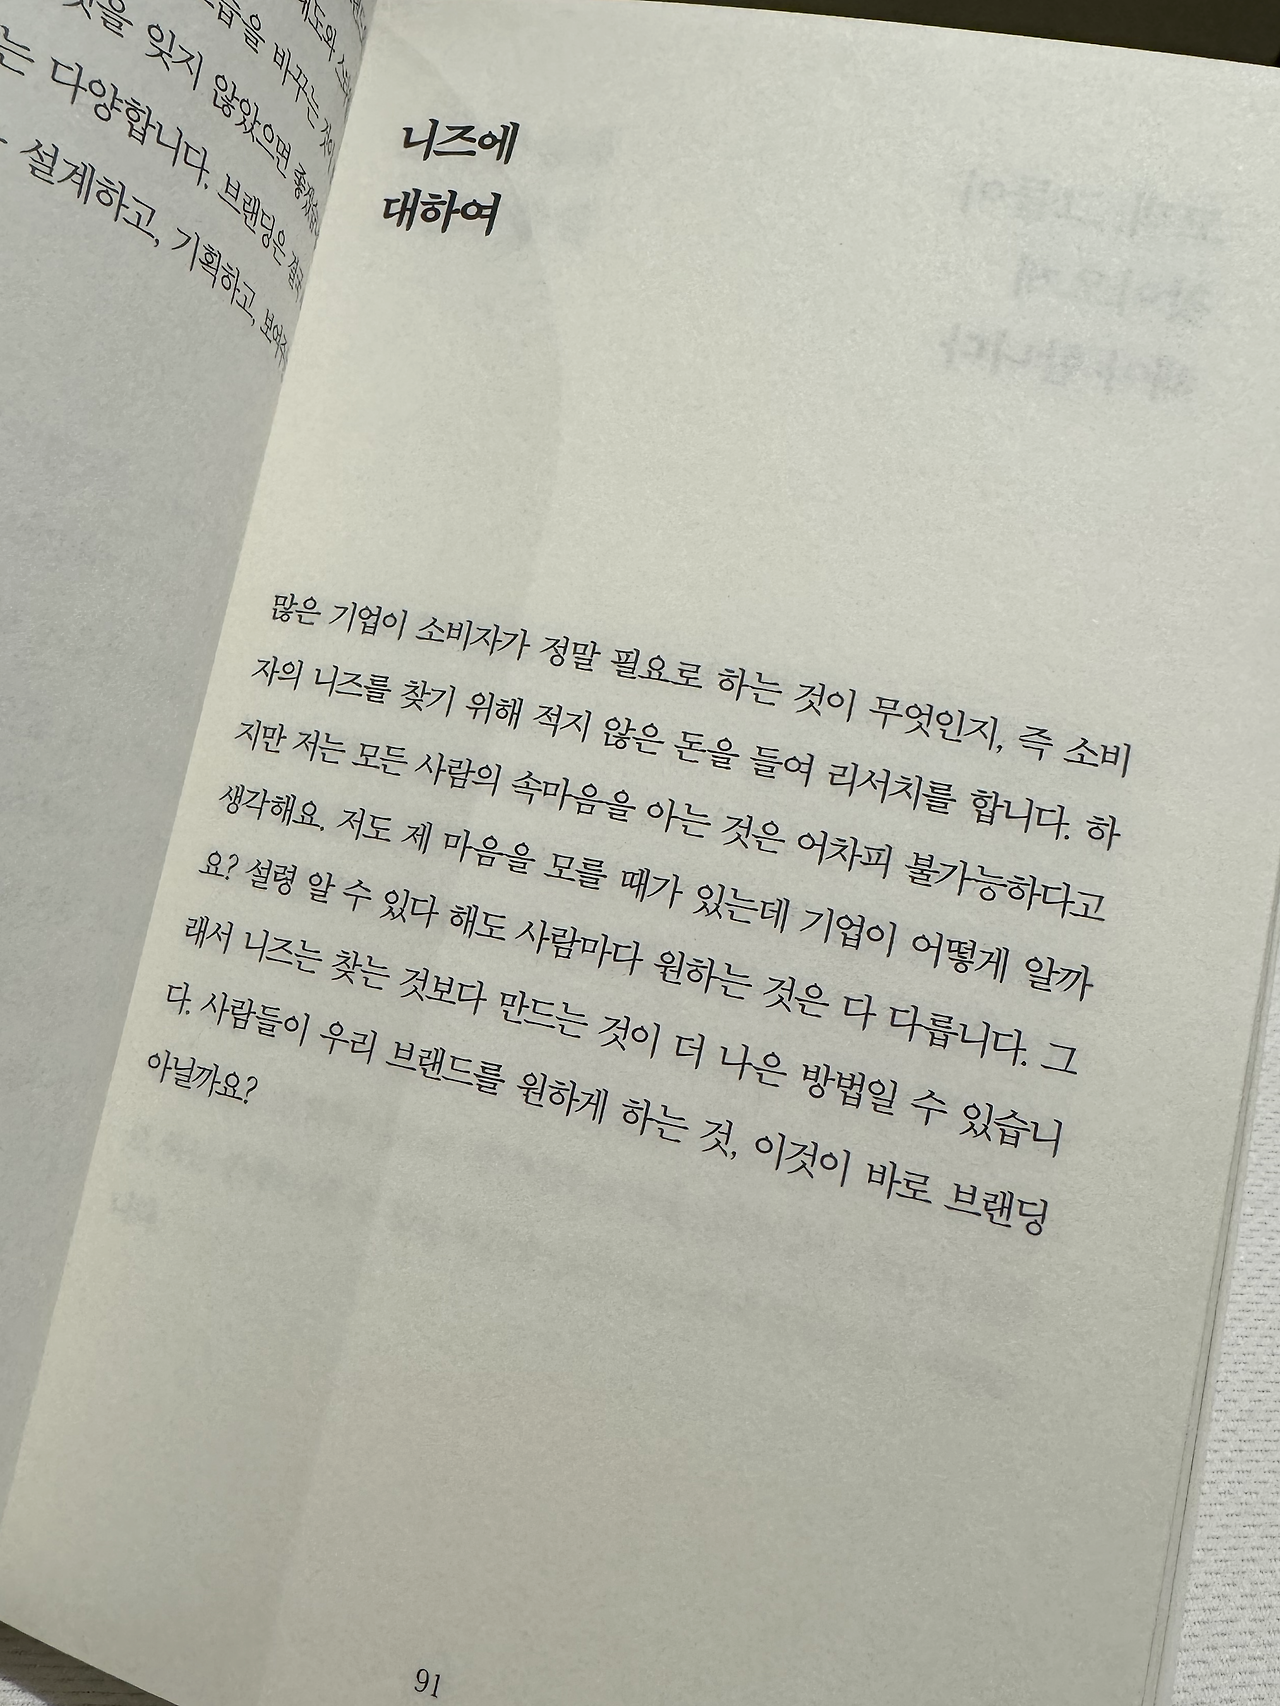 것을 잊지 않았으면
는 다양합니다. 브랜딩은
설계하고, 기획하고,
니즈에
대하여
많은 기업이 소비자가 정말 필요로 하는 것이 무엇인지, 즉 소비
자의 니즈를 찾기 위해 적지 않은 돈을 들여 리서치를 합니다. 하
지만 저는 모든 사람의 속마음을 아는 것은 어차피 불가능하다고
생각해요. 저도 제 마음을 모를 때가 있는데 기업이 어떻게 알까
요? 설령 알 수 있다 해도 사람마다 원하는 것은 다 다릅니다. 그
래서 니즈는 찾는 것보다 만드는 것이 더 나은 방법일 수 있습니
다. 사람들이 우리 브랜드를 원하게 하는 것, 이것이 바로 브랜딩
아닐까요?
91